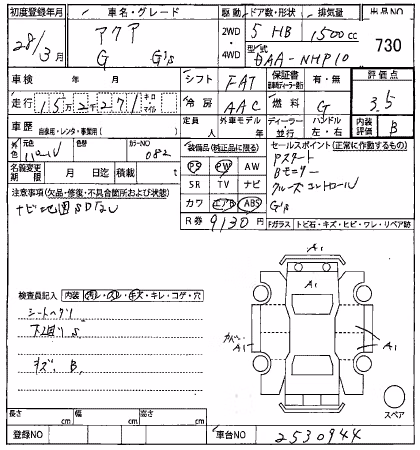 初度登録年月 車名・グレード 駆動 ドア数・形状 排気量 出品NO
28/3月 アクア G G's 2WD・4WD 5 HB 1500cc 730
型式 DAA-NHP10
車検 年 月 シフト FAT 保証書 有・無 評価点
走行 152271 キロ・マイル 冷房 AAC 燃料 G 3.5
車歴 自家用・レンタ・事業用( ) 定員 人 外車モデル 年 ディーラー・並行 ハンドル 左・右 内装評価 B
外色 元色 色替 カラーNO 082
装備品(純正品に限る) セールスポイント(正常に作動するもの)
PS PW AW Pスタート
名義変更期限 月 日迄 積載 t SR TV ナビ Bモニター
クルーズコントロール
注意事項(欠品・修復・不具合箇所および状態) カワ エアB ABS G's
ナビ地図SDなし R券 9130円 Fガラス トビ石・キズ・ヒビ・ワレ・リペア跡
検査員記入 内装 汚レ・スレ・キズ・キレ・コゲ・穴
シートヘタリ
下廻りS
キズ、B、
A1
A1
カバー A1
A1
スペア
長さ cm 幅 cm 高さ cm
登録NO 車台NO 2530944